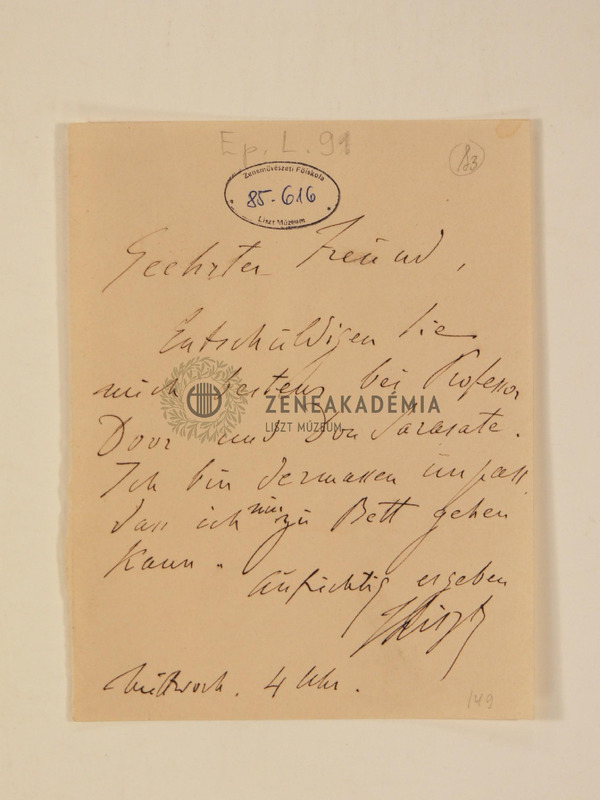 Ep. L. 91
83
Zeneművészeti Főiskola
85-616
Liszt Múzeum
Geehrter Freund,
Entschuldigen Sie
mich bestens bei Professor
ZENEAKADÉMIA
LISZT MÚZEUM
Door und Don Sarasate.
Ich bin dermassen unpass
dass ich nur zu Bett gehen
kann.
Aufrichtig ergeben
FLiszt
Mittwoch. 4 Uhr.
149